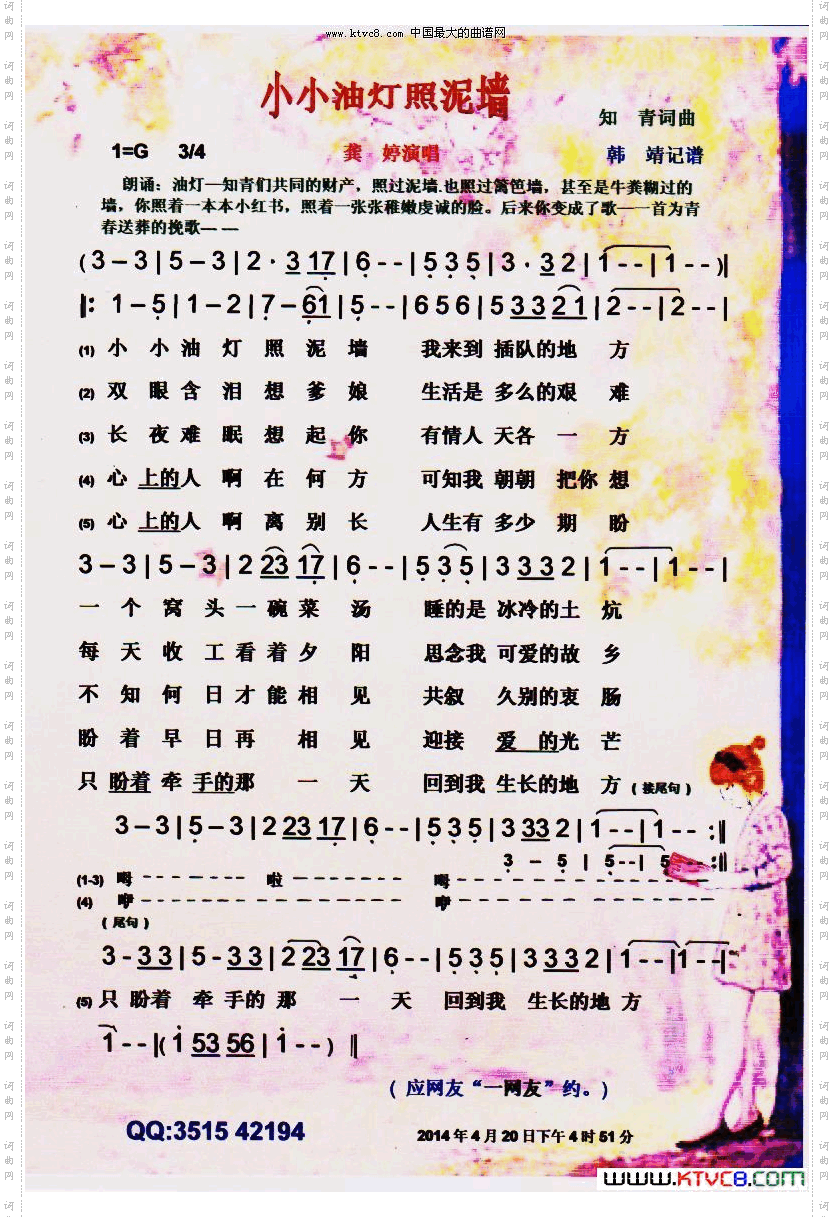 www.ktvc8.com 中国最大的曲谱网
小小油灯照泥墙
知 青词曲
1=G 3/4 龚 婷演唱 韩 靖记谱
朗诵：油灯—知青们共同的财产，照过泥墙.也照过篱笆墙，甚至是牛粪糊过的
墙，你照着一本本小红书，照着一张张稚嫩虔诚的脸。后来你变成了歌——首为青
春送葬的挽歌— —
(3 – 3 | 5 – 3 | 2 · 3 17 | 6 - - | 5 3 5 | 3 · 3 2 | 1 - - | 1 - - )‖
‖: 1 – 5 | 1 – 2 | 7 – 61 | 5 - - | 6 5 6 | 5 33 21 | 2 - - | 2 - - |
(1) 小 小 油 灯 照 泥 墙 我来到 插队的地 方
(2) 双 眼 含 泪 想 爹 娘 生活是 多么的艰 难
(3) 长 夜 难 眠 想 起 你 有情人 天各 一 方
(4) 心 上的人 啊 在 何 方 可知我 朝朝 把你 想
(5) 心 上的人 啊 离 别 长 人生有 多少 期 盼
3 – 3 | 5 – 3 | 2 23 17 | 6 - - | 5 3 5 | 3 33 2 | 1 - - | 1 - - |
一 个 窝 头 一 碗 菜 汤 睡的是 冰冷的土 炕
每 天 收 工 看 着 夕 阳 思念我 可爱的故 乡
不 知 何 日 才 能 相 见 共叙 久别的衷 肠
盼 着 早 日 再 相 见 迎接 爱 的光 芒
只 盼着 牵 手的那 一 天 回到我 生长的地 方 (接尾句)
3 – 3 | 5 – 3 | 2 23 17 | 6 - - | 5 3 5 | 3 33 2 | 1 - - | 1 - - :‖
3 – 5 | 5 - - | 5 - - :‖
(1-3) 啊 - - - - - - - 啦 - - - - - - - - 啊 - - - - - - - -
(4) 咿 - - - - - - - - - - - - - - - - - 咿 - - - - - - - -
(尾句)
3 - 3 3 | 5 - 3 3 | 2 23 17 | 6 - - | 5 3 5 | 3 33 2 | 1 - - | 1 - - |
(5) 只 盼着 牵 手的 那 一 天 回到我 生长的地 方
1 - - |( 1 53 56 | 1 - - ) ‖
( 应网友“一网友”约。)
QQ:3515 42194 2014 年 4 月 20 日下午 4 时 51 分
www.KTVC8.com